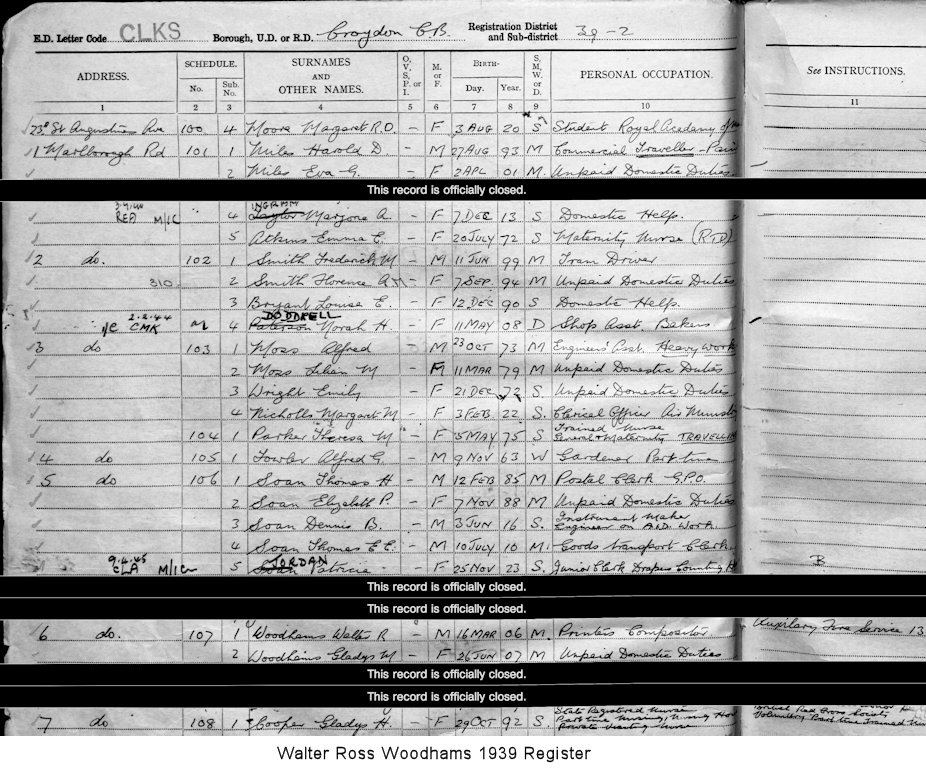 E.D. Letter Code CLKS Borough, U.D. or R.D. Croydon C.B. Registration District and Sub-district 39-2
ADDRESS. SCHEDULE. No. Sub. No. SURNAMES AND OTHER NAMES. O, V, S, P. or I. M. or F. BIRTH- Day. Year. S, M, W, or D. PERSONAL OCCUPATION. See INSTRUCTIONS.
1 2 3 4 5 6 7 8 9 10 11
23a St Augustines Ave 100 4 Moore Margaret R.O. - F 3 AUG 20 S Student Royal Academy of
1 Marlborough Rd 101 1 Miles Harold D. - M 27 AUG 93 M Commercial Traveller - Pain
2 Miles Eva G. - F 2 APL 01 M. Unpaid Domestic Duties
This record is officially closed.
INGRAM
REA M/IC 4 Taylor Marjorie A. - F 7 DEC 13 S Domestic Help.
5 Atkins Emma E. - F 20 JULY 72 S Maternity Nurse (RTD)
2 do. 102 1 Smith Frederick M - M 11 JUN 99 M Tram Driver
310 2 Smith Florence A - F 7 SEP. 94 M Unpaid Domestic Duties
3 Bryant Louisa E. - F 12 DEC 90 S Domestic Help.
DODDRELL
2.2.44 CMK 4 Paterson Norah H. - F 11 MAY 08 D Shop Asst Bakers
3 do 103 1 Moss Alfred M 23 OCT 73 M Engineers' Asst. Heavy Work
2 Moss Lilian M - F 11 MAR 79 M Unpaid Domestic Duties
3 Wright Emily - F 21 DEC 72 S. Unpaid Domestic Duties
4 Nicholls Margaret M - F 3 FEB. 22 S. Clerical Officer Air Minist
Trained Nurse
104 1 Parker Theresa M - F 5 MAY 75 S General & Maternity TRAVELLIN
4 do 105 1 Fowler Alfred G. - M 9 NOV 63 W Gardener Part time
5 do 106 1 Soan Thomas H - M 12 FEB 85 M Postal Clerk G.P.O.
2 Soan Elizabeth P. - F 7 NOV 88 M Unpaid Domestic Duties
Instrument Maker
3 Soan Dennis B. - M 3 JUN 16 S. Engineer on A.I.D. Work.
4 Soan Thomas E E. - M 10 JULY 10 M. Goods Transport Clerk
JORDAN
9.4.45 ELA M/IC 5 Soan Patricia - F 25 NOV 23 S. Junior Clerk Drapes Counting H B
This record is officially closed.
This record is officially closed.
6 do. 107 1 Woodhams Walter R - M 16 MAR 06 M. Printers Compositor Auxilary Fire Service 13
2 Woodhams Gladys M - F 26 JUN 07 M Unpaid Domestic Duties
This record is officially closed.
This record is officially closed.
State Registered Nurse
7 do 108 1 Cooper Gladys H. - F 29 OCT 92 S. Part time Nursing, Nursing Hom British Red Cross Society
Private Visiting Nurse Voluntary Part time Trained Nur
Walter Ross Woodhams 1939 Register